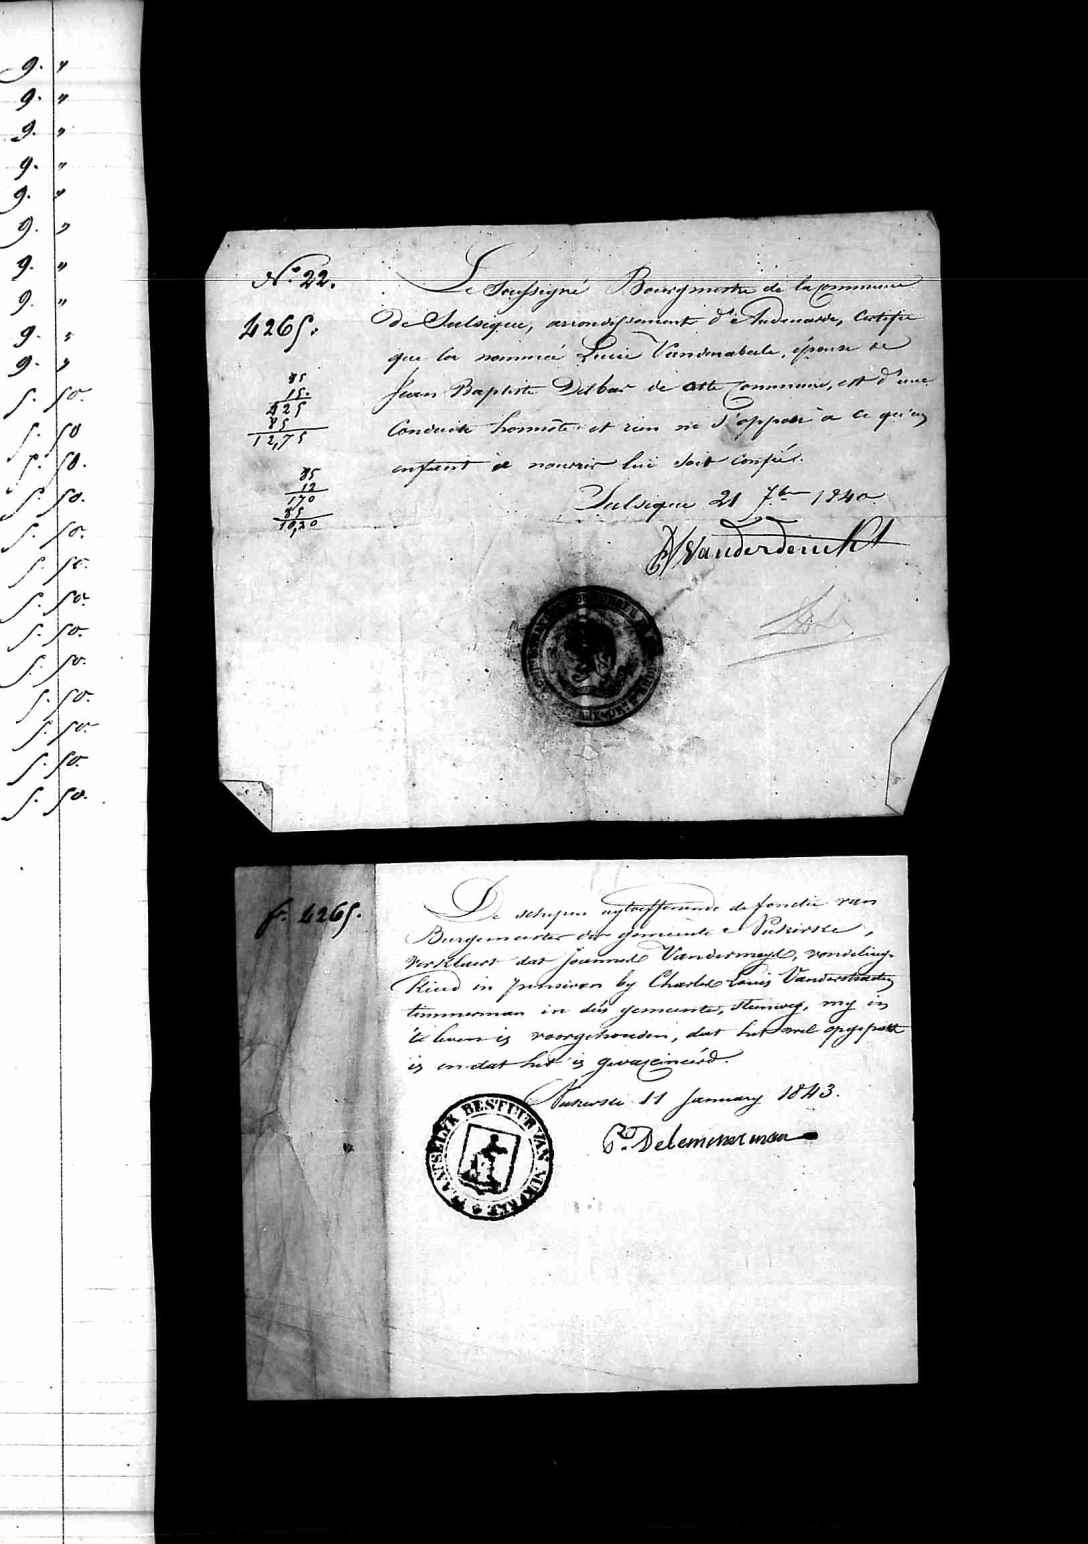 9. "
9. "
9. "
9. "
9. "
9. "
9. "
9. "
9. "
9. "
5. 50.
5. 50
5. 50.
5. 50.
5. 50.
5. 50.
5. 50.
5. 50.
5. 50.
5. 50.
5. 50.
5. 50.
5. 50.
N.° 22.
4265.
85
15.
425
85
12,75
85
12
170
85
10,20
Le Soussigné Bourgmestre de la Commune
de Sulsique, arrondissement d'Audenarde, Certifie
que la nommée Lucie Vandenabeele, épouse de
Jean Baptiste Delbar de cette Commune, est d'une
Conduite honnête et rien ne s'oppose à ce qu'un
enfant à nourrir lui soit confié.
Sulsique 21 7bre 1840.
Vanderdonckt
fr. 4265.
De schepen uytoeffenende de fonctie van
Burgemeester der gemeente Nukerke,
verklaert dat Joannes Vandermeyd, vondeling-
Kind in pensioen by Charles Louis Vanderstraeten
timmerman in dees gemeente, steenweg, my in
't leven is voorgehouden, dat het wel opgepast
is en dat het is gevaccineerd.
Nukerke 11 January 1843.
PLAETSELYK BESTUUR VAN NUKERKE